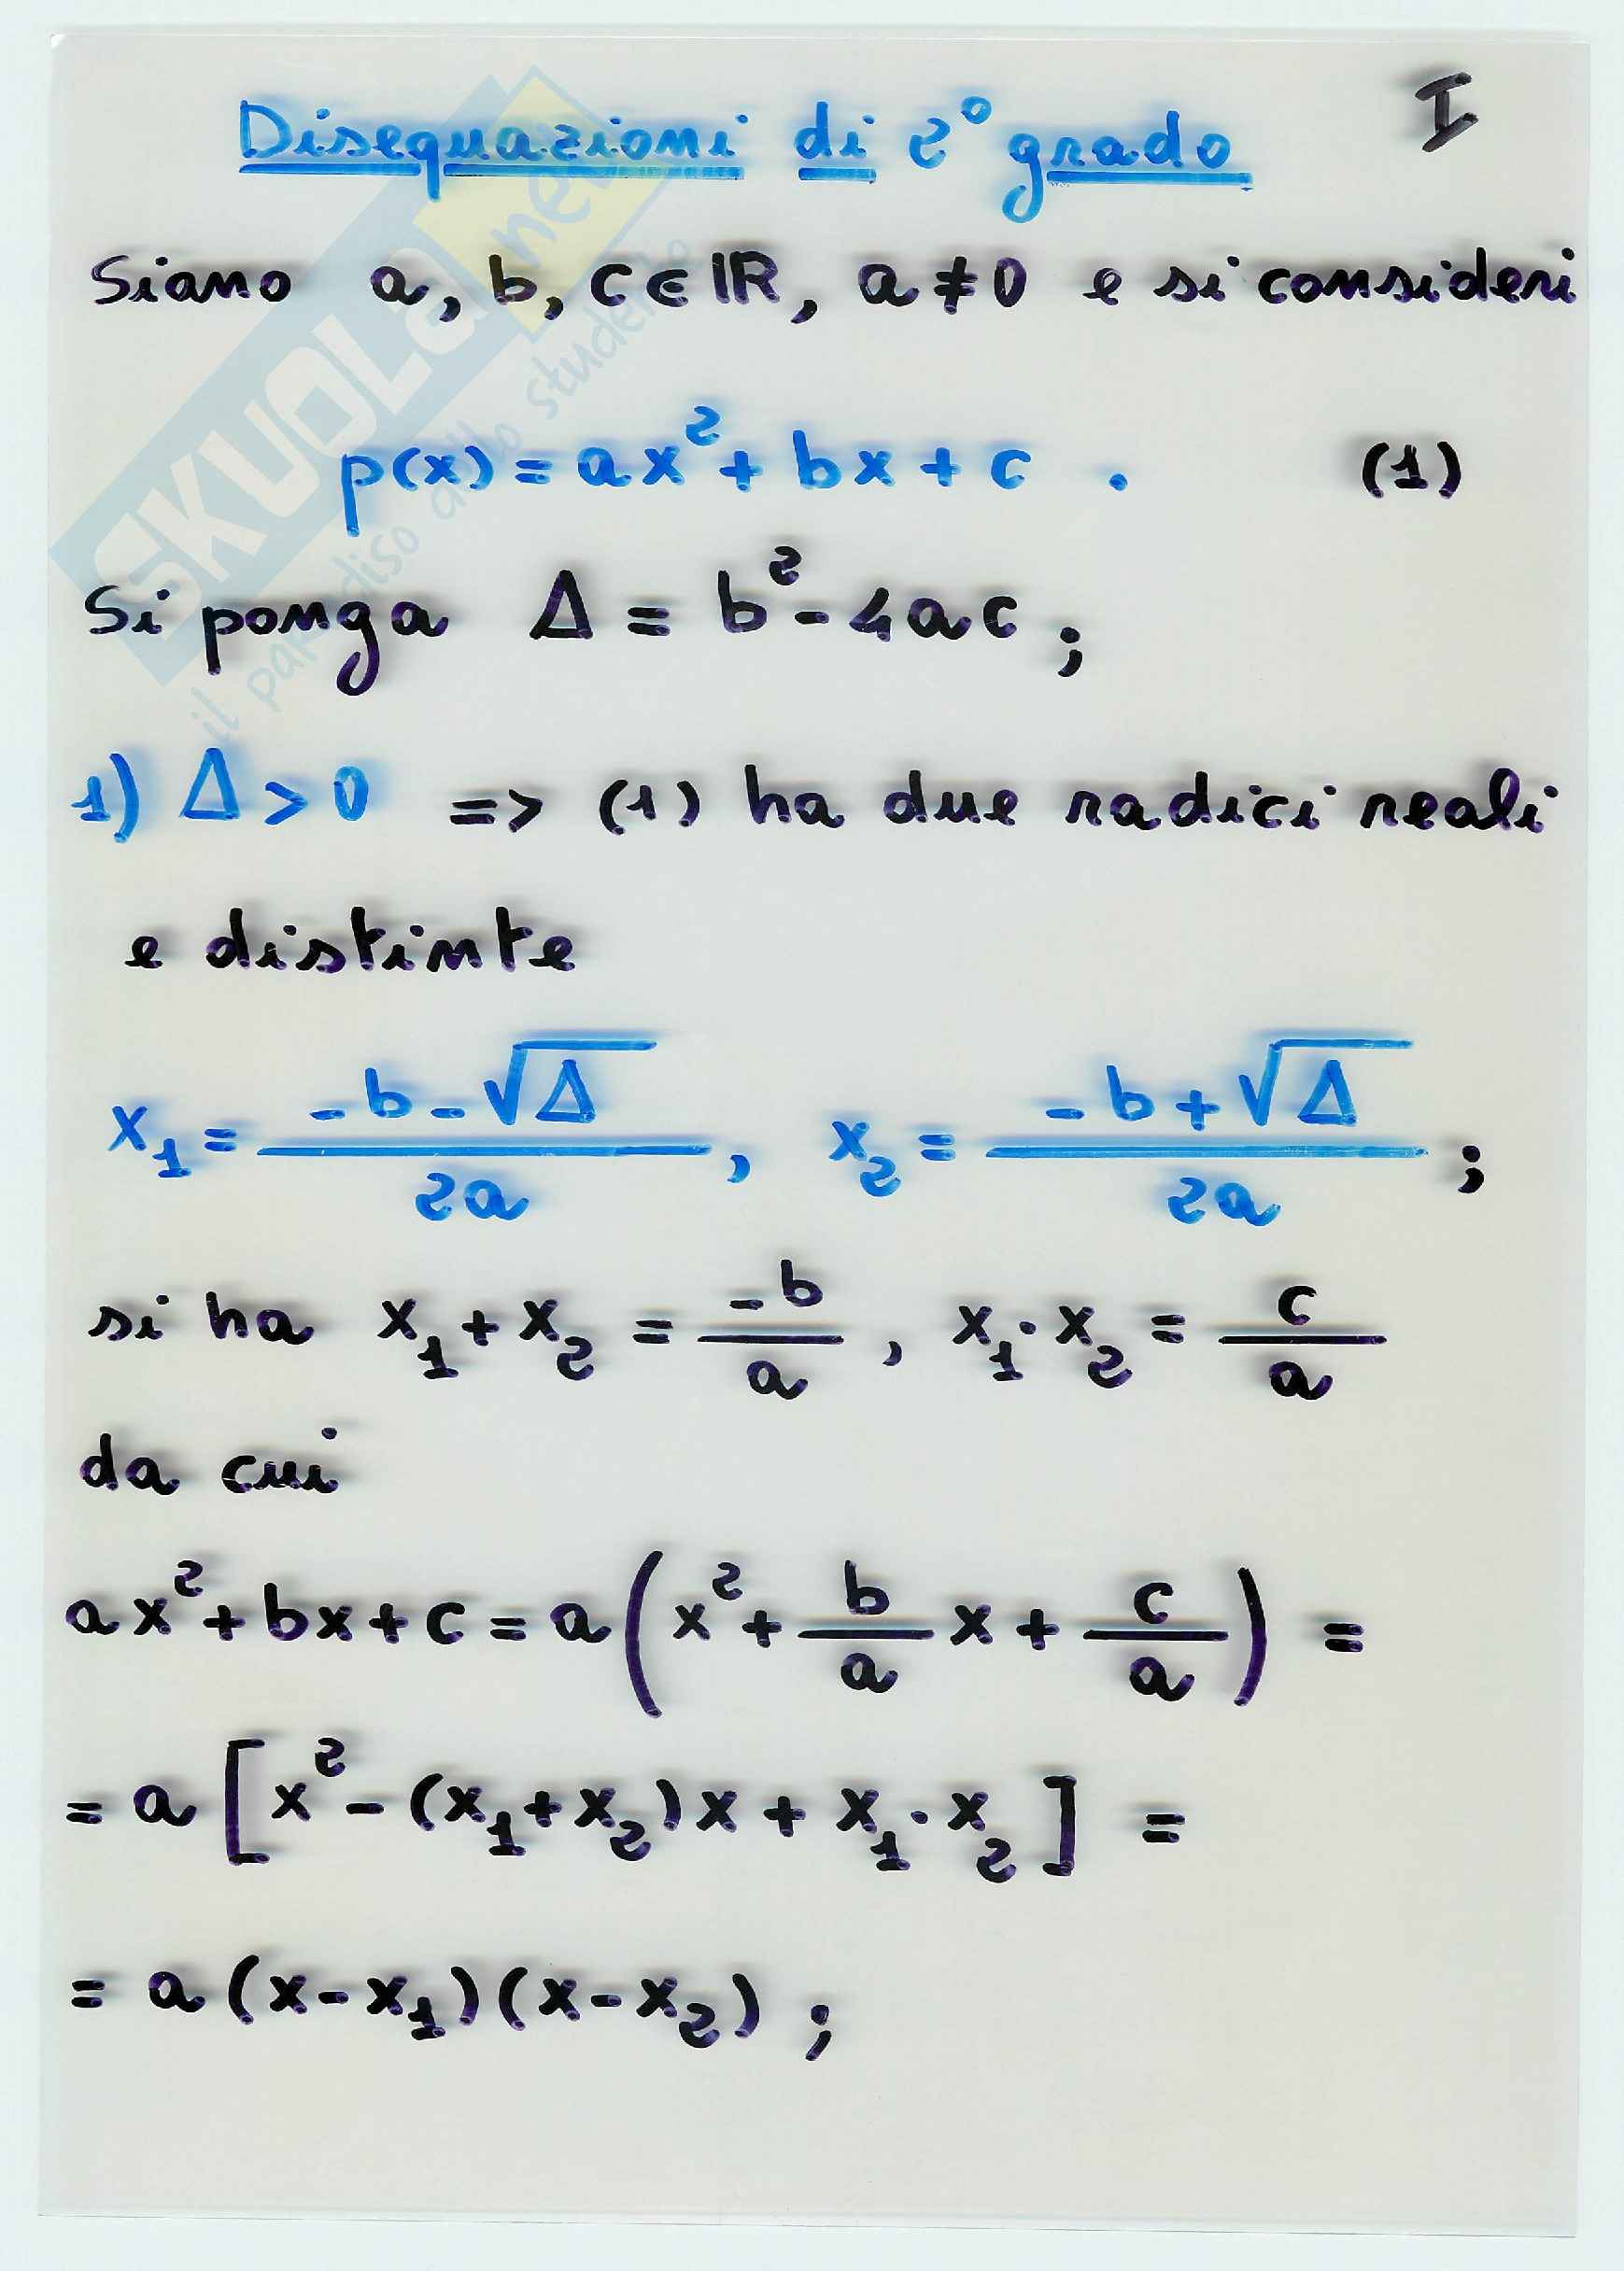 Disequazioni di 2° grado I
Siano a, b, c ∈ ℝ, a ≠ 0 e si consideri
p(x) = ax² + bx + c . (1)
Si ponga Δ = b² - 4ac ;
1) Δ > 0 => (1) ha due radici reali
e distinte
x₁ = (-b - √Δ)/2a , x₂ = (-b + √Δ)/2a ;
si ha x₁ + x₂ = -b/a , x₁ · x₂ = c/a
da cui
ax² + bx + c = a(x² + b/a x + c/a) =
= a [x² - (x₁ + x₂)x + x₁ · x₂] =
= a (x - x₁)(x - x₂) ;
SKUOLA.net
il paradiso dello studente